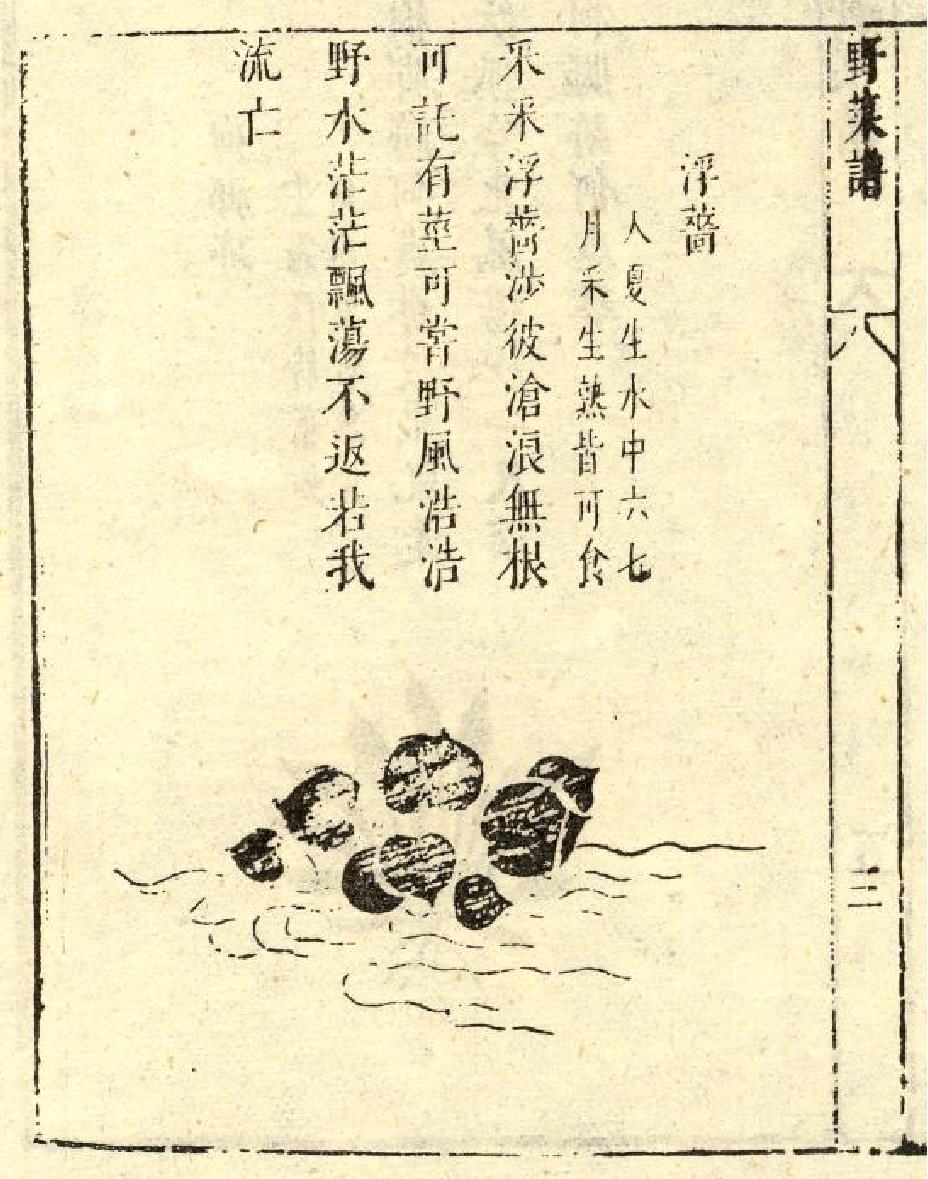 野菜譜
三
浮蔷
入夏生水中六七
月采生熟皆可食
采采浮蔷涉彼滄浪無根
可託有莖可嘗野風浩浩
野水茫茫飄蕩不返若我
流亡